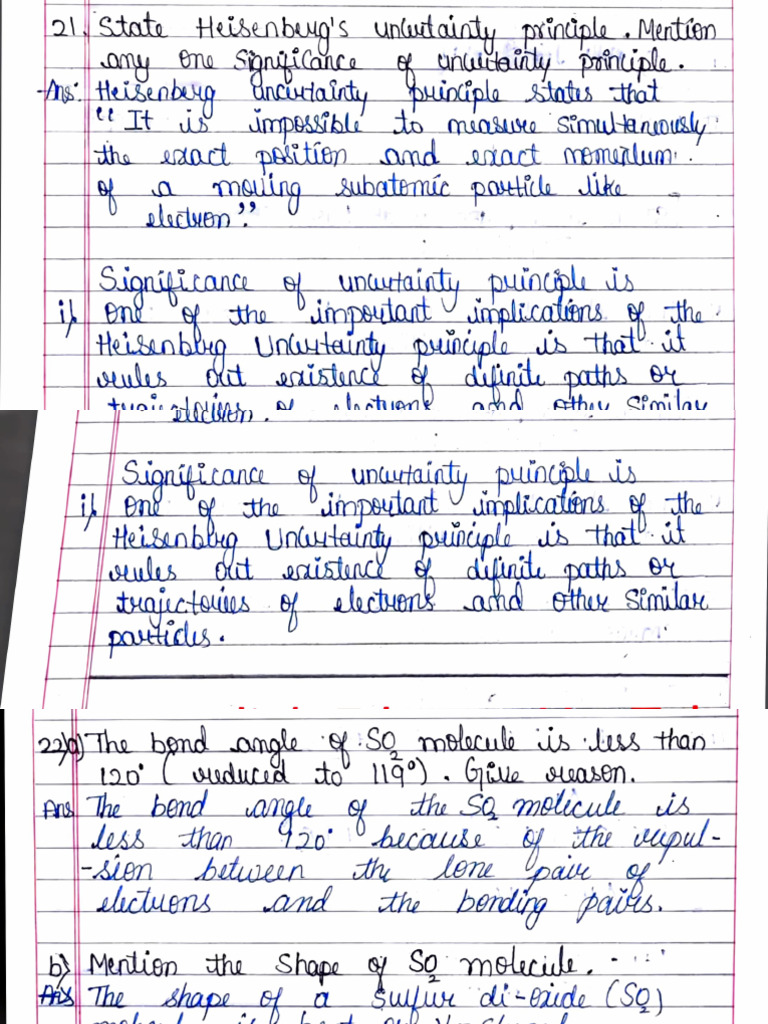 21. State Heisenberg's uncertainty principle. Mention
any one significance of uncertainty principle.
Ans: Heisenberg uncertainty principle states that
"It is impossible to measure simultaneously
the exact position and exact momentum
of a moving subatomic particle like
electron".
Significance of uncertainty principle is
i) One of the important implications of the
Heisenberg Uncertainty principle is that it
rules out existence of definite paths or
electron.
Significance of uncertainty principle is
i) One of the important implications of the
Heisenberg Uncertainty principle is that it
rules out existence of definite paths or
trajectories of electrons and other similar
particles.
22)a) The bond angle of SO2 molecule is less than
120° (reduced to 119°). Give reason.
Ans The bond angle of the SO2 molecule is
less than 120° because of the repul-
-sion between the lone pair of
electrons and the bonding pairs.
b) Mention the Shape of SO2 molecule.
Ans The shape of a sulfur di-oxide (SO2)